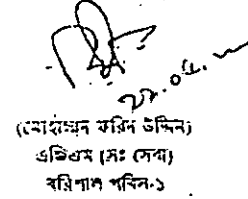 ২৮.০৪.
(মোহাম্মদ ফরিদ উদ্দিন)
এজিএম (সঃ সেবা)
বরিশাল পবিস-১